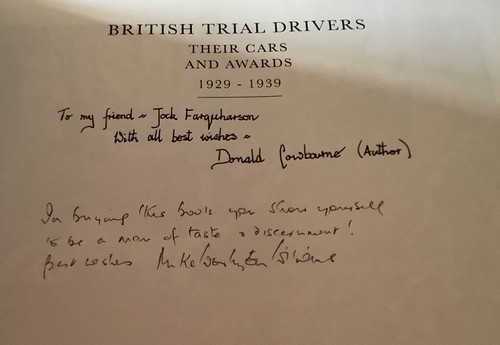 BRITISH TRIAL DRIVERS
THEIR CARS
AND AWARDS
1929 - 1939
To my friend ~ Jock Farquharson
With all best wishes ~
Donald Cowbourne (Author)
In buying this book you show yourself
to be a man of taste & discernment!
Best wishes Mike Worthington-Williams